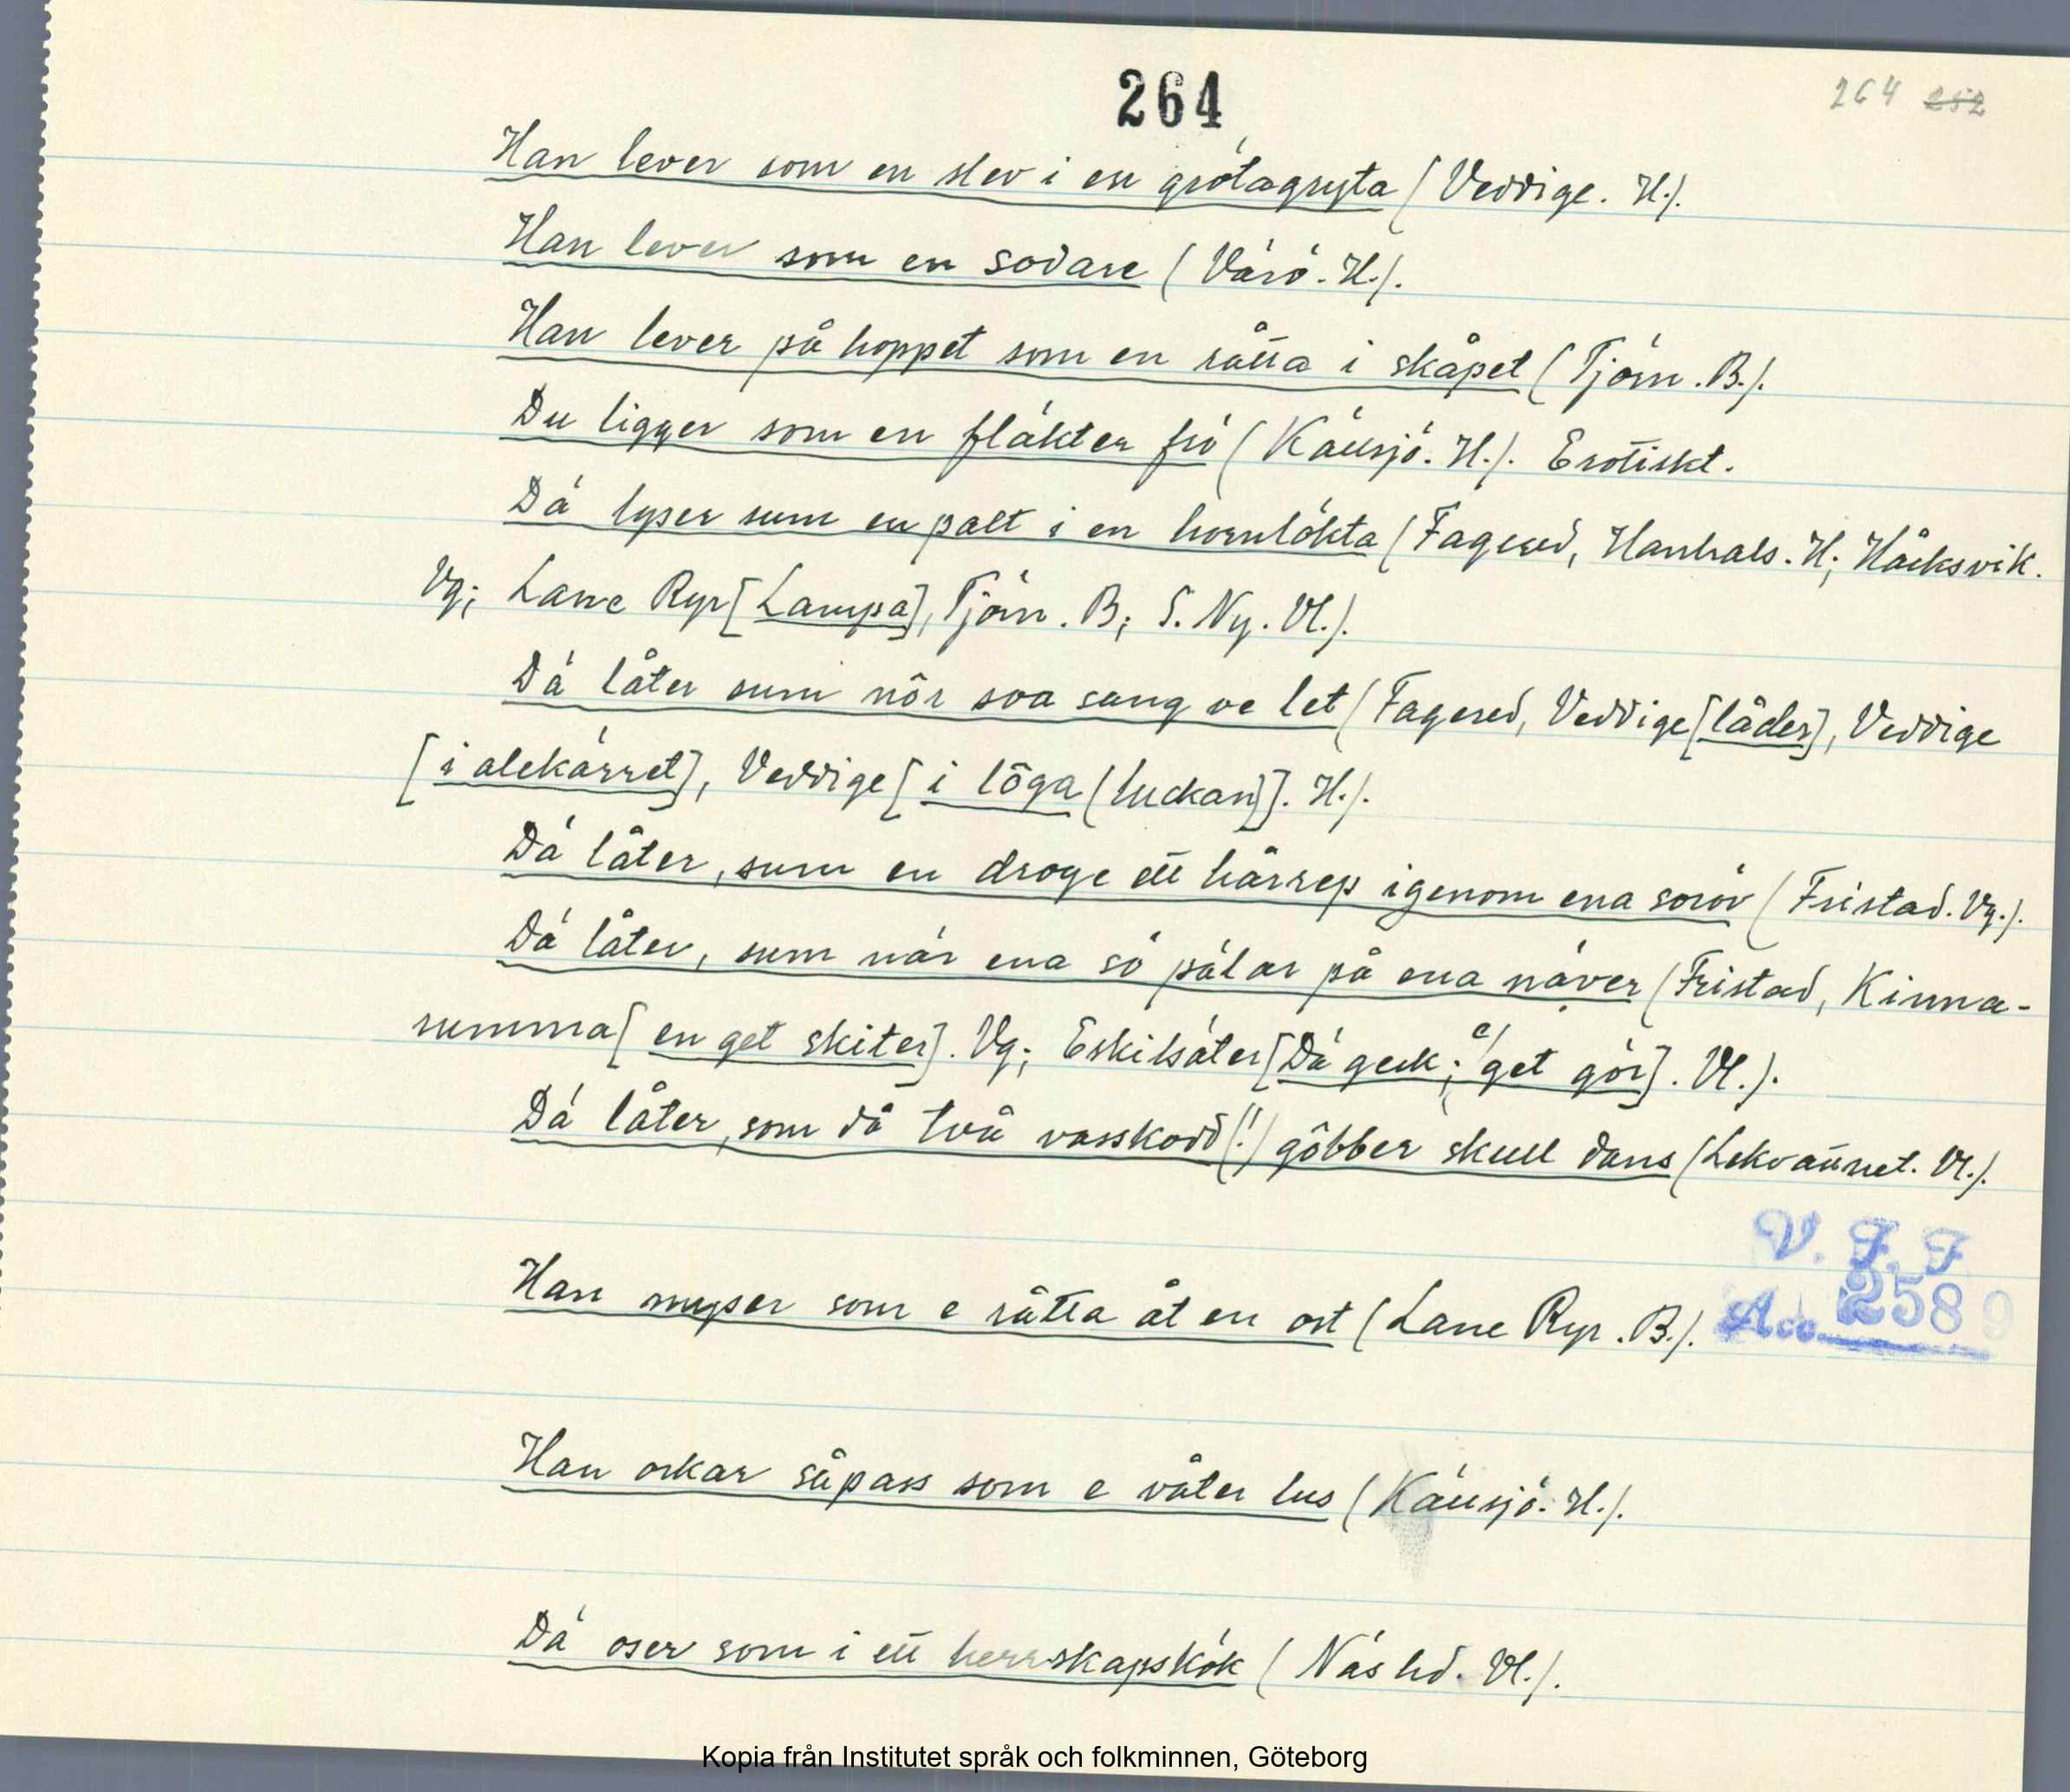 264
264 252
Han lever som en slev i en grötagryta (Veddige. H.).
Han lever som en sodare (Värö. H.).
Han lever på hoppet som en råtta i skåpet (Tjörn. B.).
Du ligger som en fläkter frö (Källsjö. H.). Erotiskt.
Dä lyser sum en palt i en hornlökta (Fagered, Hanhals. H; Håcksvik.
Vg; Lane Ryr [Lampa], Tjörn. B; S. Ny. Vl.).
Dä låter sum nôr soa sang ve let (Fagered, Veddige [låder], Veddige
[i alekärret], Veddige [i lôga (luckan)]. H.).
Dä låter, sum en droge ett hårrep igenom ena soröv (Fristad. Vg.).
Dä låter, sum när ena sö pålar på ena näver (Fristad, Kinna-
rumma [en get skiter]. Vg; Eskilsäter [Dä geck; e/ get gör]. Vl.).
Dä låter, som då två vasskodd (!) gôbber skull dans (Lekvattnet. Vl.).
V. F. F
Acc. 2589
Han myser som e råtta åt en ost (Lane Ryr. B.).
Han orkar såpass som e våter lus (Källsjö. H.).
Dä oser som i ett herrskapskök (Näs hd. Vl.).
Kopia från Institutet språk och folkminnen, Göteborg